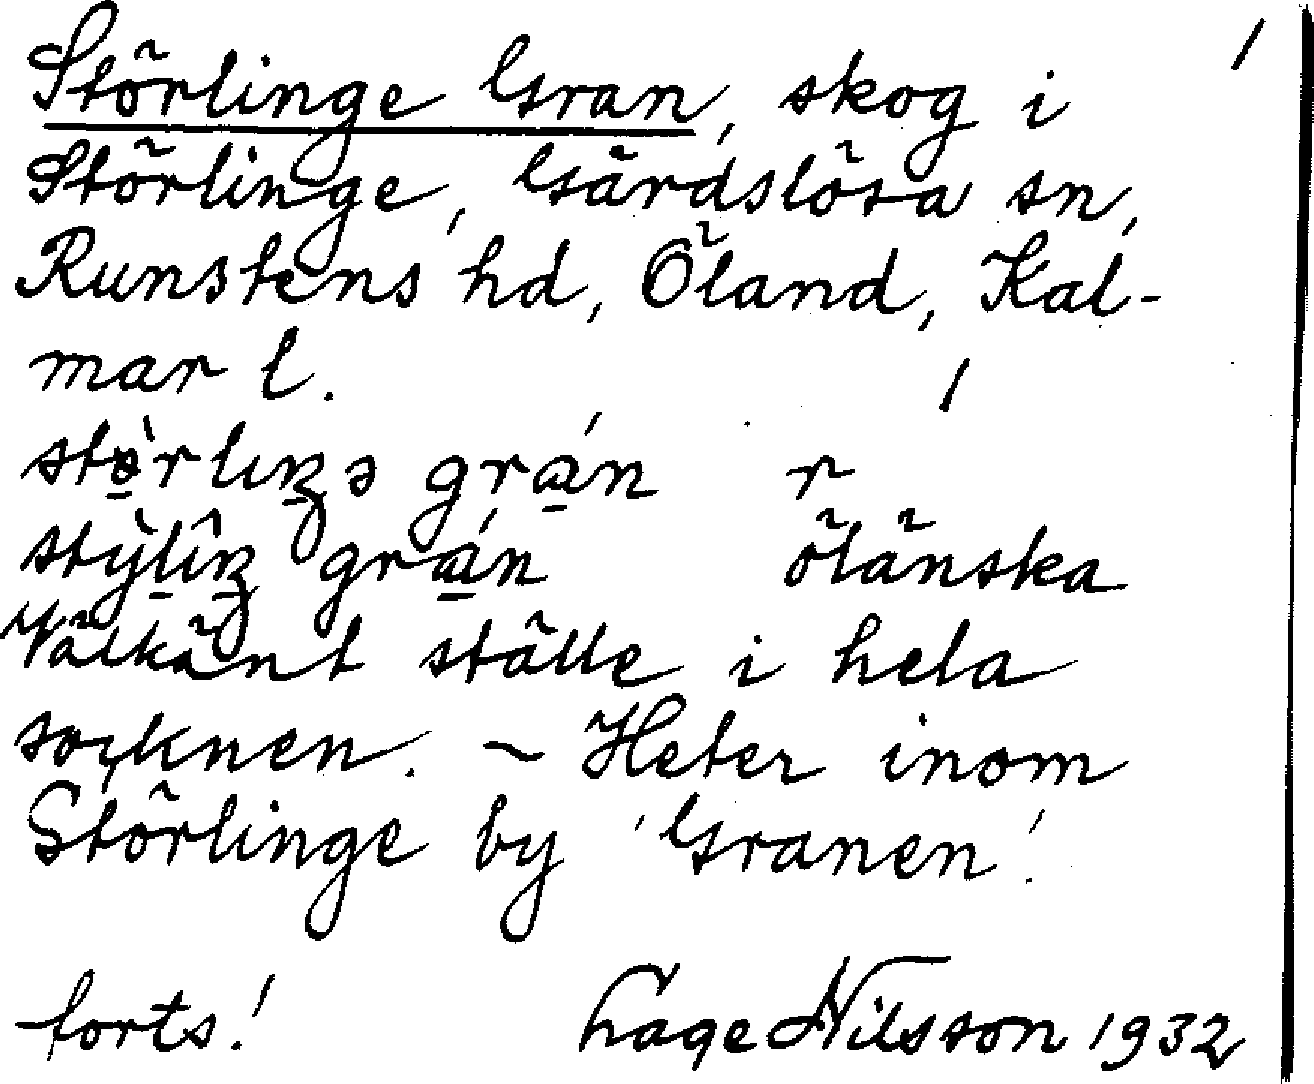 Störlinge Gran, skog i
Störlinge, Gärdslösa sn,
Runstens hd, Öland, Kal-
mar l.
grán r
grán öländska
Välkänt ställe i hela
socknen. – Heter inom
Störlinge by 'Granen'.
forts! Lage Nilsson 1932